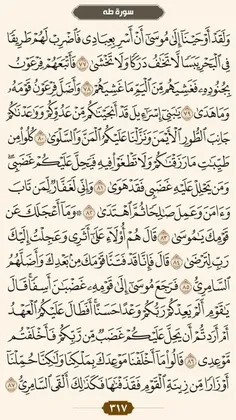 سورة طه
وَلَقَدْ أَوْحَيْنَا إِلَىٰ مُوسَىٰ أَنْ أَسْرِ بِعِبَادِي فَاضْرِبْ لَهُمْ طَرِيقًا
فِي الْبَحْرِ يَبَسًا لَّا تَخَافُ دَرَكًا وَلَا تَخْشَىٰ ٧٧ فَأَتْبَعَهُمْ فِرْعَوْنُ
بِجُنُودِهِ فَغَشِيَهُم مِّنَ الْيَمِّ مَا غَشِيَهُمْ ٧٨ وَأَضَلَّ فِرْعَوْنُ قَوْمَهُ
وَمَا هَدَىٰ ٧٩ يَابَنِي إِسْرَائِيلَ قَدْ أَنجَيْنَاكُم مِّنْ عَدُوِّكُمْ وَوَاعَدْنَاكُمْ
جَانِبَ الطُّورِ الْأَيْمَنَ وَنَزَّلْنَا عَلَيْكُمُ الْمَنَّ وَالسَّلْوَىٰ ٨٠ كُلُوا مِن
طَيِّبَاتِ مَا رَزَقْنَاكُمْ وَلَا تَطْغَوْا فِيهِ فَيَحِلَّ عَلَيْكُمْ غَضَبِي
وَمَن يَحْلِلْ عَلَيْهِ غَضَبِي فَقَدْ هَوَىٰ ٨١ وَإِنِّي لَغَفَّارٌ لِّمَن تَابَ
وَءَامَنَ وَعَمِلَ صَالِحًا ثُمَّ اهْتَدَىٰ ٨٢ ۞ وَمَا أَعْجَلَكَ عَن
قَوْمِكَ يَامُوسَىٰ ٨٣ قَالَ هُمْ أُولَاءِ عَلَىٰ أَثَرِي وَعَجِلْتُ إِلَيْكَ
رَبِّ لِتَرْضَىٰ ٨٤ قَالَ فَإِنَّا قَدْ فَتَنَّا قَوْمَكَ مِن بَعْدِكَ وَأَضَلَّهُمُ
السَّامِرِيُّ ٨٥ فَرَجَعَ مُوسَىٰ إِلَىٰ قَوْمِهِ غَضْبَانَ أَسِفًا قَالَ
يَاقَوْمِ أَلَمْ يَعِدْكُمْ رَبُّكُمْ وَعْدًا حَسَنًا أَفَطَالَ عَلَيْكُمُ الْعَهْدُ
أَمْ أَرَدتُّمْ أَن يَحِلَّ عَلَيْكُمْ غَضَبٌ مِّن رَّبِّكُمْ فَأَخْلَفْتُم
مَّوْعِدِي ٨٦ قَالُوا مَا أَخْلَفْنَا مَوْعِدَكَ بِمَلْكِنَا وَلَٰكِنَّا حُمِّلْنَا
أَوْزَارًا مِّن زِينَةِ الْقَوْمِ فَقَذَفْنَاهَا فَكَذَٰلِكَ أَلْقَى السَّامِرِيُّ ٨٧
٣١٧